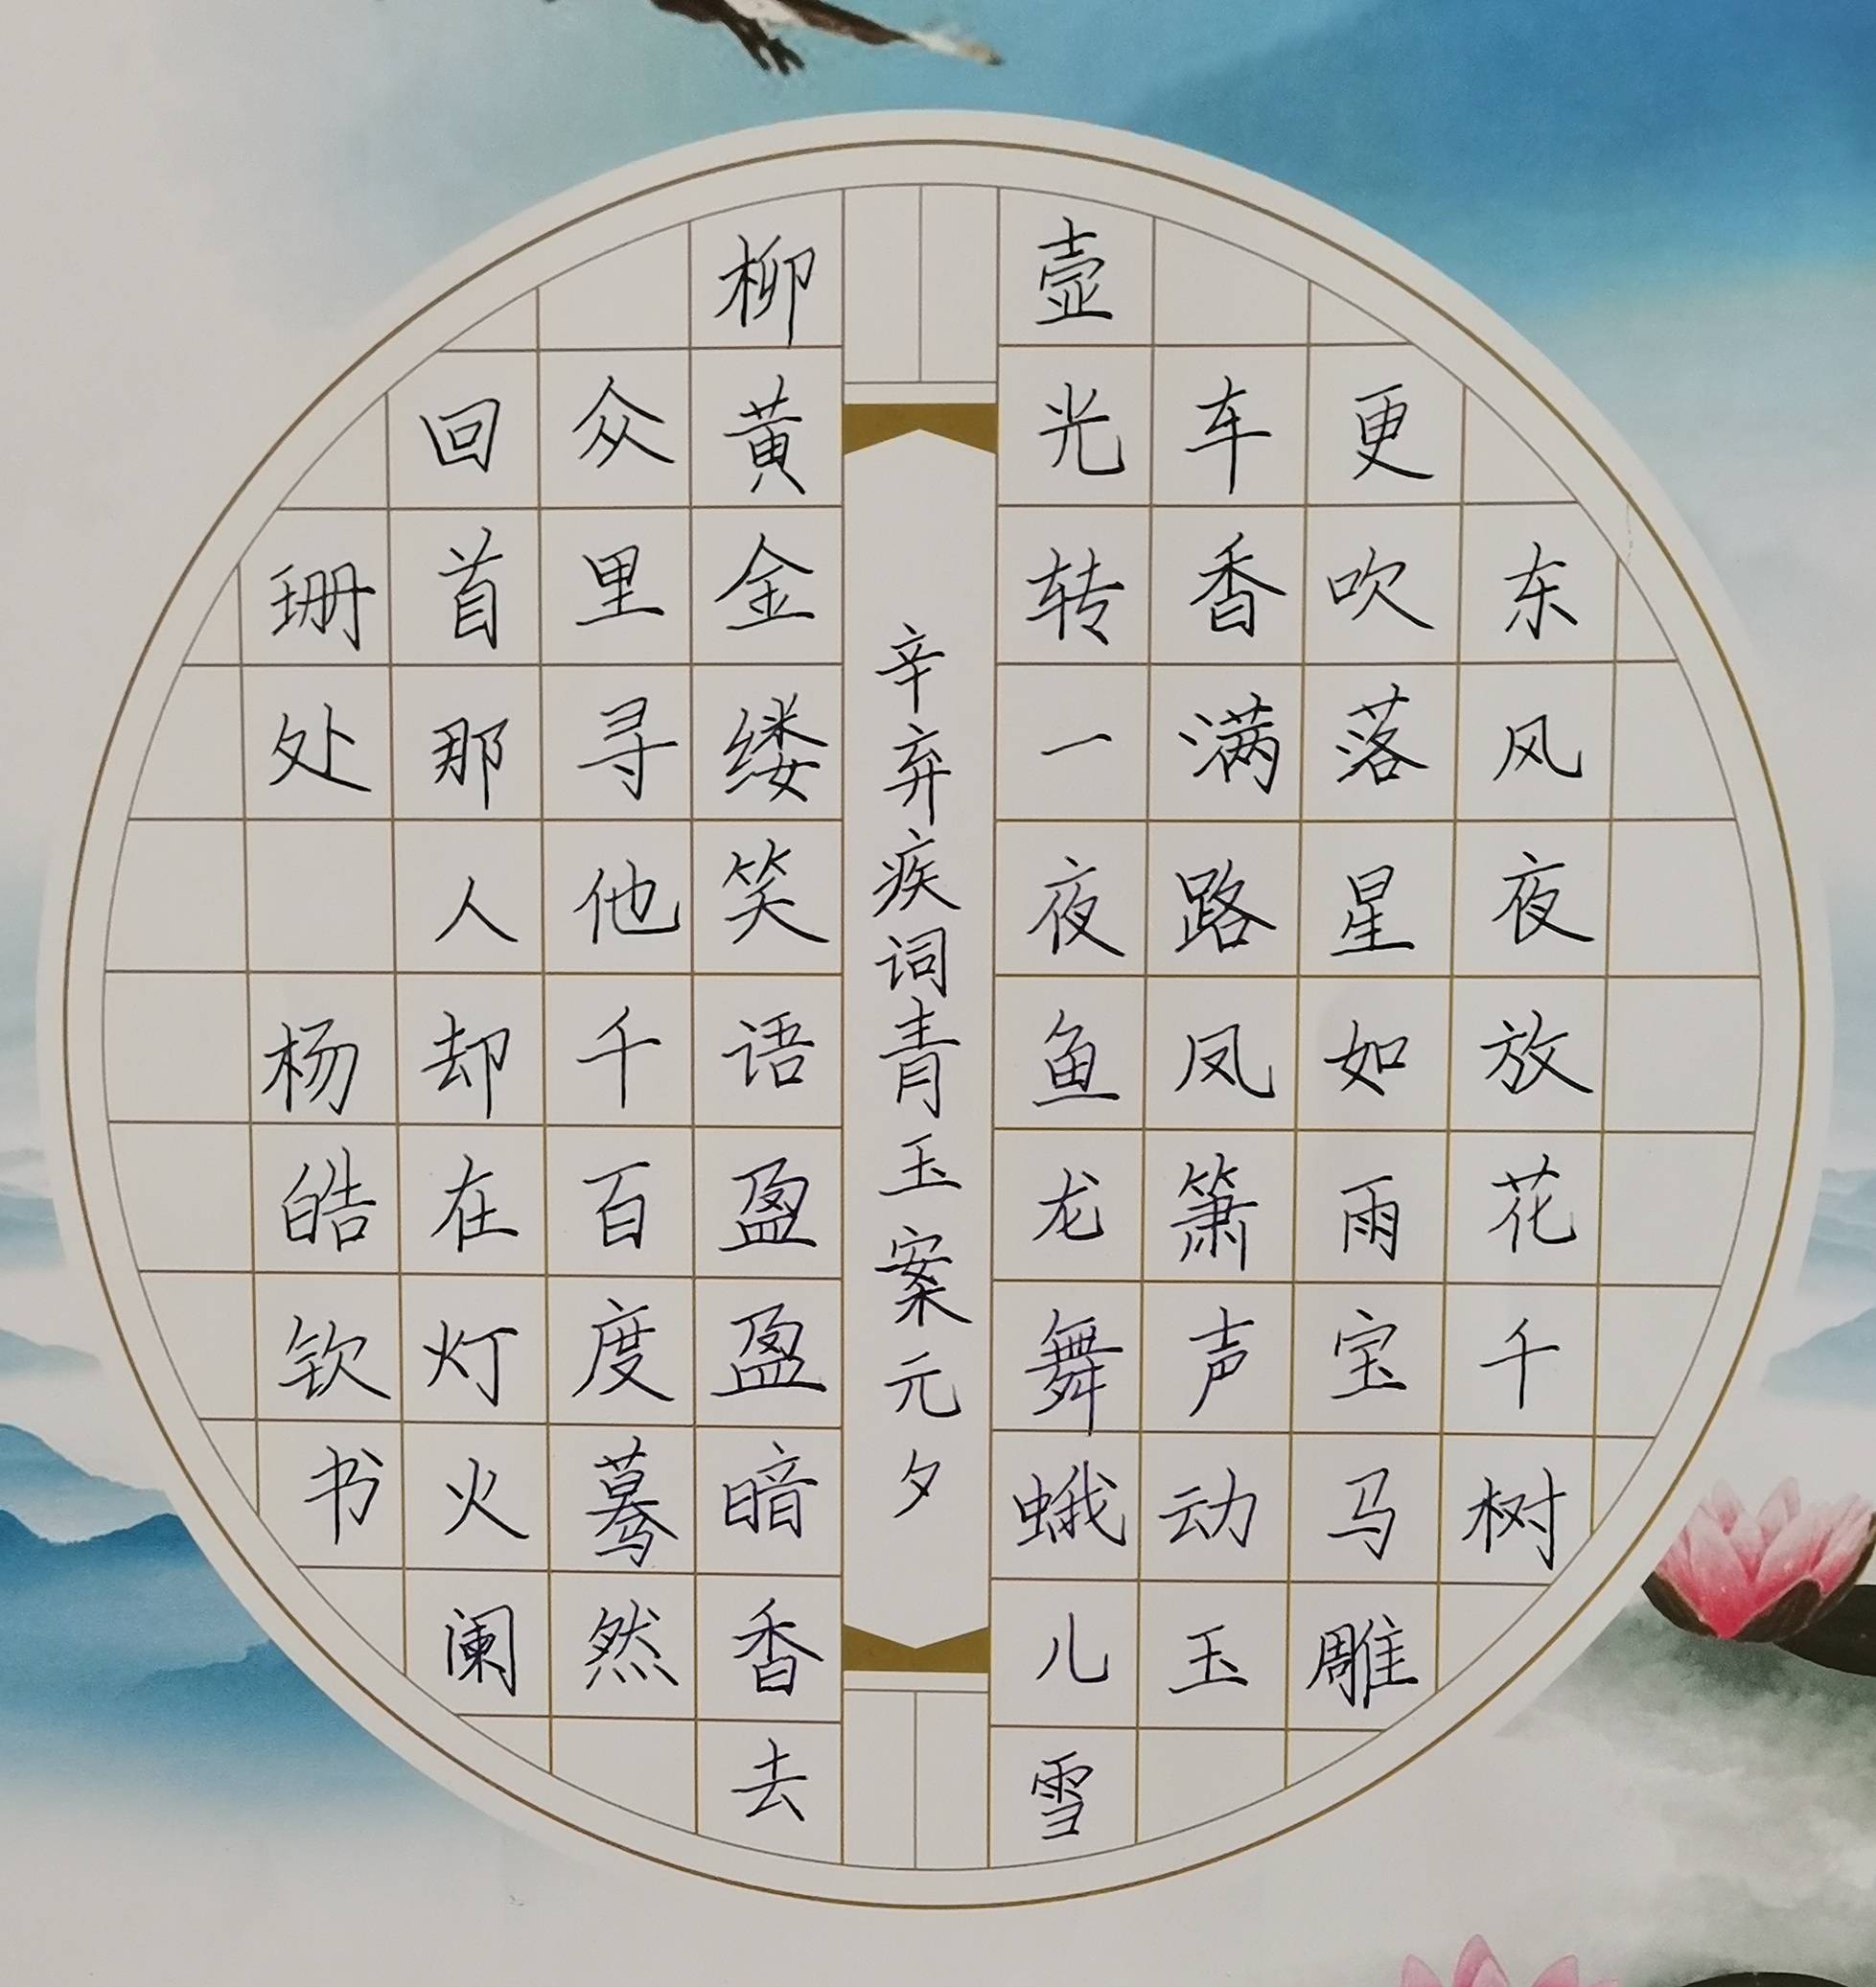 东风夜放花千树
更吹落星如雨宝马雕
车香满路凤箫声动玉
壶光转一夜鱼龙舞蛾儿雪
辛弃疾词青玉案元夕
柳黄金缕笑语盈盈暗香去
众里寻他千百度蓦然
回首那人却在灯火阑
珊处
杨皓钦书